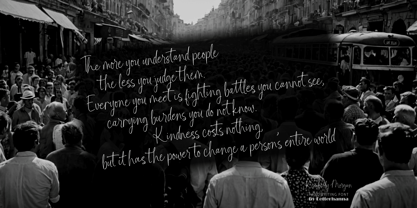 The more you understand people
the less you judge them.
Everyone you meet is fighting battles you cannot see,
carrying burdens you do not know.
Kindness costs nothing,
but it has the power to change a person's entire world